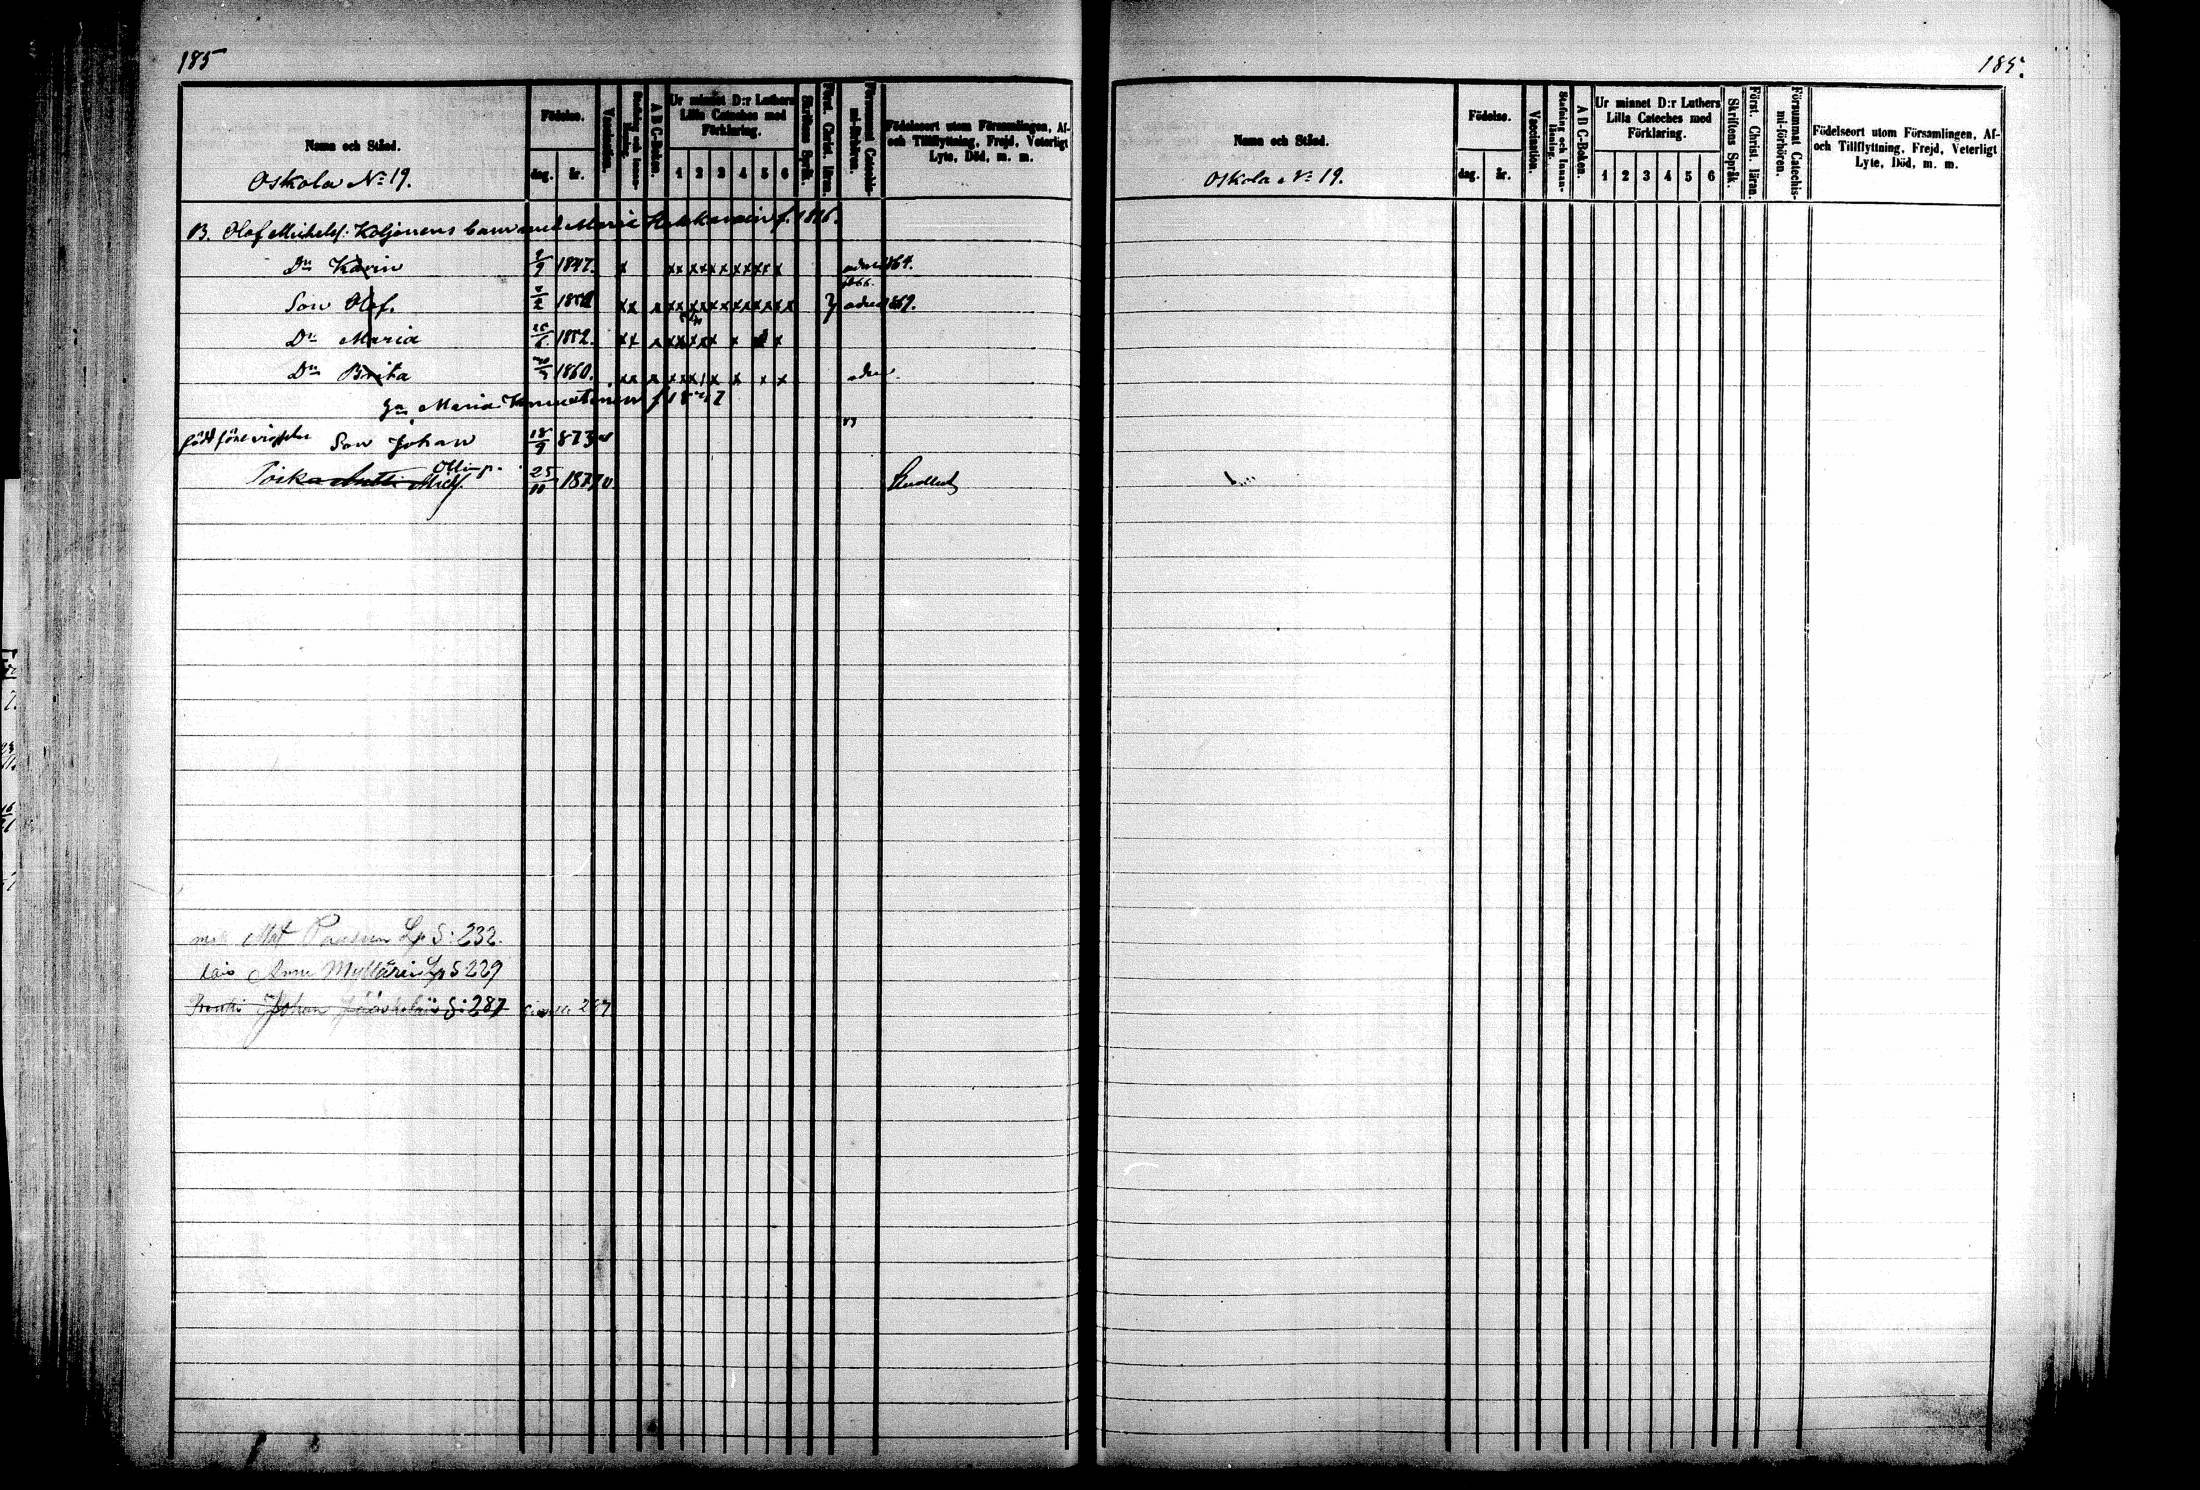 185
Namn och Stånd.
Oskola No 19.
Födelse.
dag.
år.
Vaccination.
Stafning och Innan-läsning.
A B C-Boken.
Ur minnet D:r Luthers Lilla Cateches med Förklaring.
1 2 3 4 5 6
Skriftens Språk.
Först. Christ. läran.
Försummat Catechis-mi-förhören.
Födelseort utom Församlingen, Af- och Tillflyttning, Frejd, Veterligt Lyte, Död, m. m.
B. Olof Michelsf: Koljonens barn med Maria f. 1816.
Dr Karin 2/9 1847. x xx xx x x x x x x x 1864.
1866.
Son Olof. 2/2 1852 xx x xx xx x x x x x x x x 1869.
Dr Maria 1852. xx x xx xx x x x
Dr Brita 1860. xx x xx x x x x x
Maria
född före Son Johan 18/9 873 v
Ollin p.
Poika Antti Mich. 25/10 1877 v
Mat Paasonen Lp S: 232.
Lois Anna Myllärin Lp S 229
Johan Jääskeläis S: 287 287
185.
Namn och Stånd.
Oskola No 19.
Födelse.
dag.
år.
Vaccination.
Stafning och Innan-läsning.
A B C-Boken.
Ur minnet D:r Luthers Lilla Cateches med Förklaring.
1 2 3 4 5 6
Skriftens Språk.
Först. Christ. läran.
Försummat Catechis-mi-förhören.
Födelseort utom Församlingen, Af- och Tillflyttning, Frejd, Veterligt Lyte, Död, m. m.